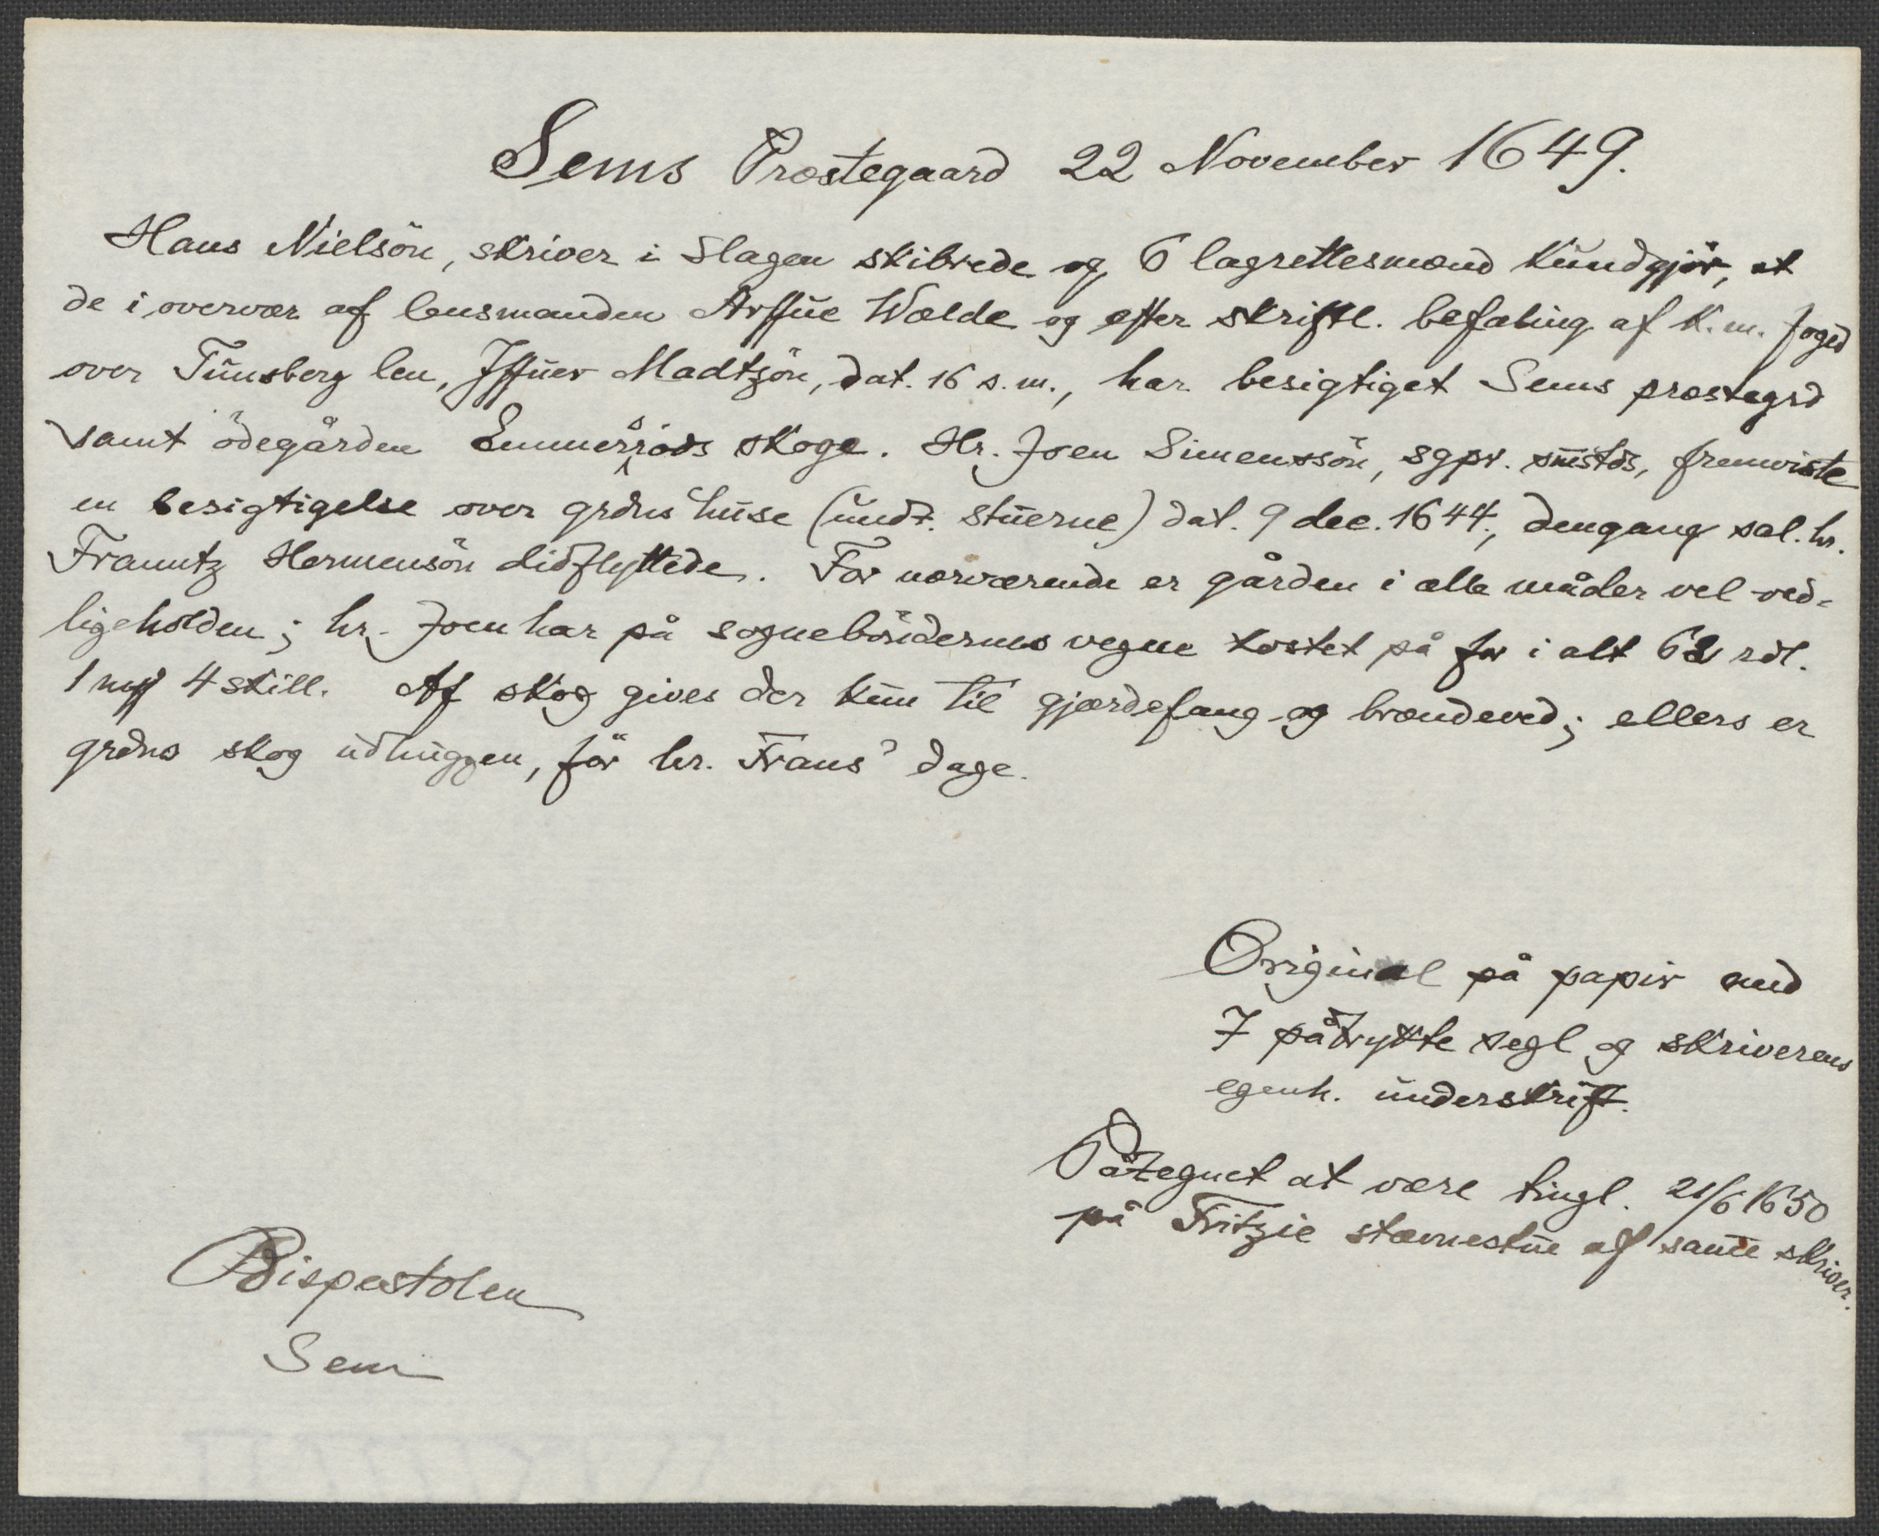 Sems Præstegaard 22 November 1649.
Hans Nielsön, skriver i Slagen skibrede og 6 lagrettesmænd kundgjör, at
de i overvær af lensmanden Arffue Wælde og efter skriftl. befaling af K. m. foged
over Tunsberg len, Iffuer Madtzön, dat. 16 s. m., har besigtiget Sems præstegrd
samt ödegården Emmersröds skoge. Hr. Joen Simensön, sgpr. smstds, fremviste
en besigtigelse over grdns huse (undt. stuerne) dat. 9 dec. 1644, dengang sal. hr.
Franntz Hermensön didflyttede. For nærværende er gården i alle måder vel ved-
ligeholden; hr. Joen har på sognebönderns vegne kostet på for i alt 62 rdl.
1 mk 4 skill. Af skog gives der kun til gjærdefang og brændeved; ellers er
grdns skog udhuggen, för hr. Frans' dage.
Original på papir med
7 påtrykte segl og skriverens
egenh. underskrift.
Påtegnet at være tingl. 21/6 1650
på Fritzie stævnestue af samme skriver.
Bispestolen
Sem